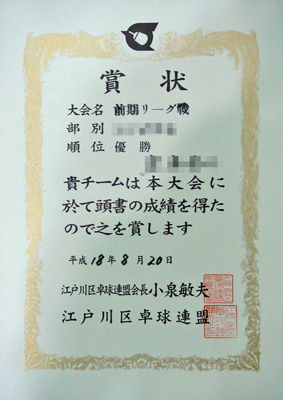 賞状
大会名 前期リーグ戦
部別
順位 優勝
貴チームは本大会に
於て頭書の成績を得た
ので之を賞します
平成18年8月20日
江戸川区卓球連盟会長 小泉敏夫
江戸川区卓球連盟